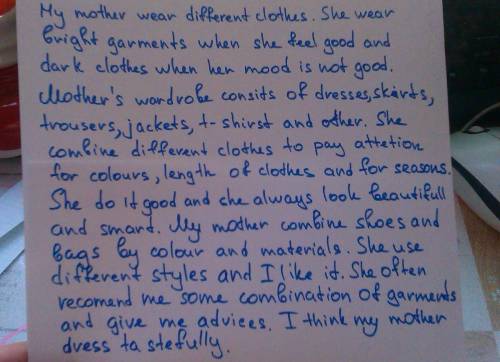 My mother wear different clothes. She wear
bright garments when she feel good and
dark clothes when her mood is not good.
Mother's wardrobe consits of dresses, skirts,
trousers, jackets, t-shirst and other. She
combine different clothes to pay attetion
for colours, length of clothes and for seasons.
She do it good and she always look beautifull
and smart. My mother combine shoes and
bags by colour and materials. She use
different styles and I like it. She often
recomend me some combination of garments
and give me advices. I think my mother
dress ta stefully.